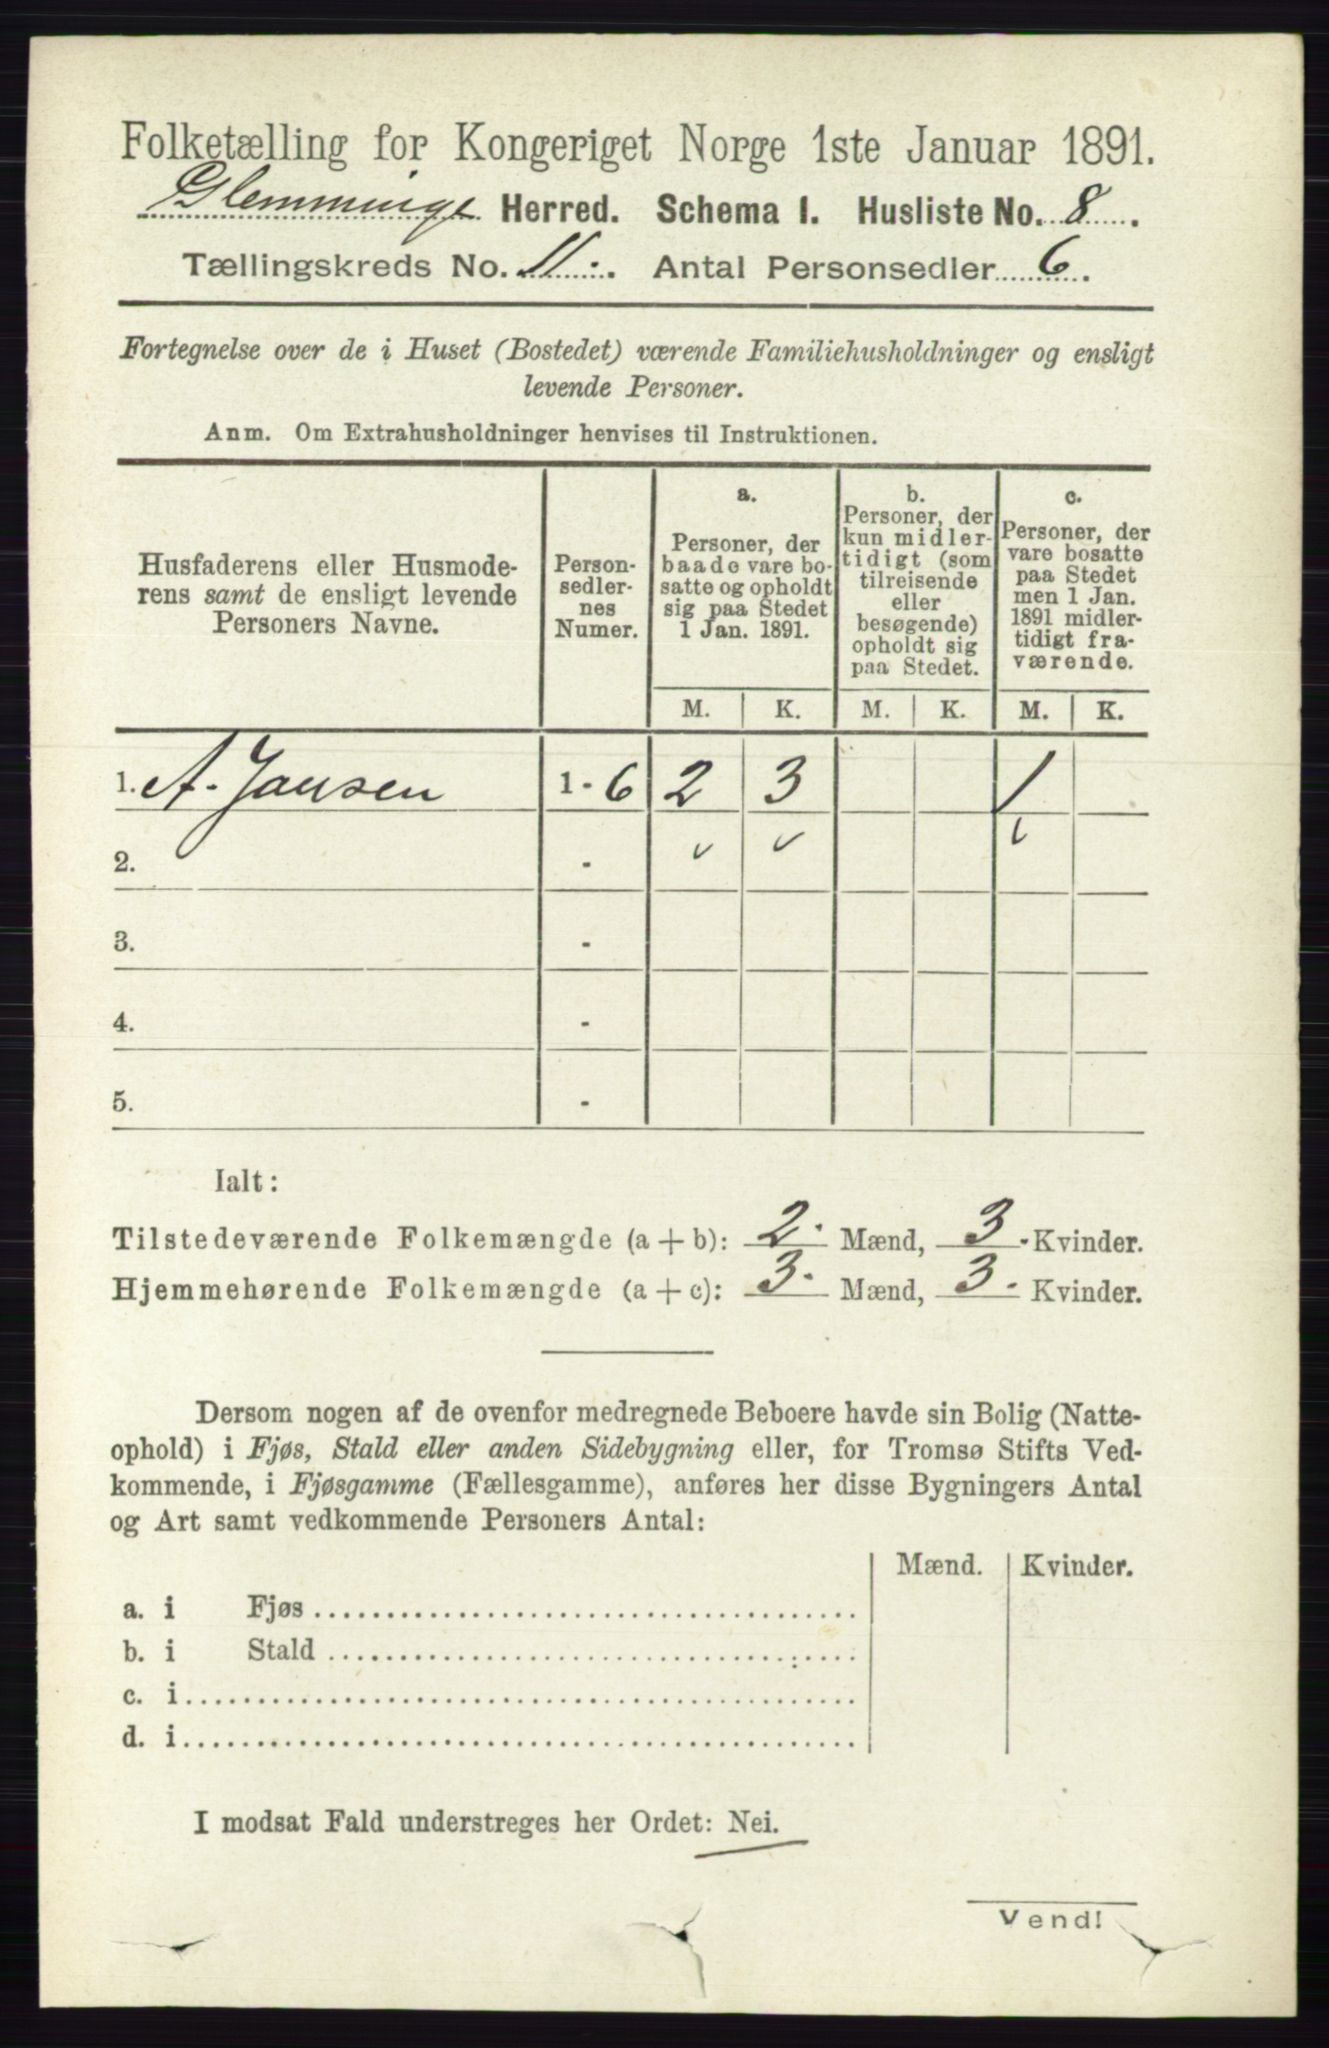 Folketælling for Kongeriget Norge 1ste Januar 1891.
Glemminge Herred. Schema I. Husliste No. 8.
Tællingskreds No. 11. Antal Personsedler 6.
Fortegnelse over de i Huset (Bostedet) værende Familiehusholdninger og ensligt
levende Personer.
Anm. Om Extrahusholdninger henvises til Instruktionen.
Husfaderens eller Husmode-
rens samt de ensligt levende
Personers Navne.
Person-
sedler-
nes
Numer.
a.
Personer, der
baade vare bo-
satte og opholdt
sig paa Stedet
1 Jan. 1891.
b.
Personer, der
kun midler-
tidigt (som
tilreisende
eller
besøgende)
opholdt sig
paa Stedet.
c.
Personer, der
vare bosatte
paa Stedet
men 1 Jan.
1891 midler-
tidigt fra-
værende.
M. K. M. K. M. K.
1. A. Jansen 1 - 6 2 3 1
2. -
3. -
4. -
5. -
Ialt:
Tilstedeværende Folkemængde (a + b): 2. Mænd, 3. Kvinder.
Hjemmehørende Folkemængde (a + c): 3. Mænd, 3. Kvinder.
Dersom nogen af de ovenfor medregnede Beboere havde sin Bolig (Natte-
ophold) i Fjøs, Stald eller anden Sidebygning eller, for Tromsø Stifts Ved-
kommende, i Fjøsgamme (Fællesgamme), anføres her disse Bygningers Antal
og Art samt vedkommende Personers Antal:
Mænd. Kvinder.
a. i Fjøs
b. i Stald
c. i
d. i
I modsat Fald understreges her Ordet: Nei.
Vend!